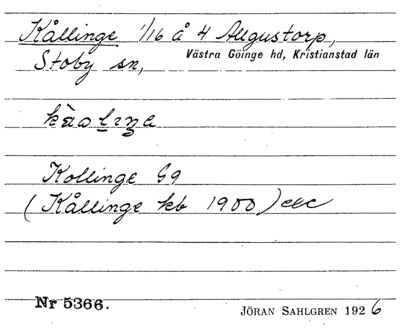 Kållinge 1/16 å 4 Augustorp,
Stoby sn, Västra Göinge hd, Kristianstad län
Kollinge G9
(Kållinge kb 1900) etc
Nr 5366. JÖRAN SAHLGREN 1926